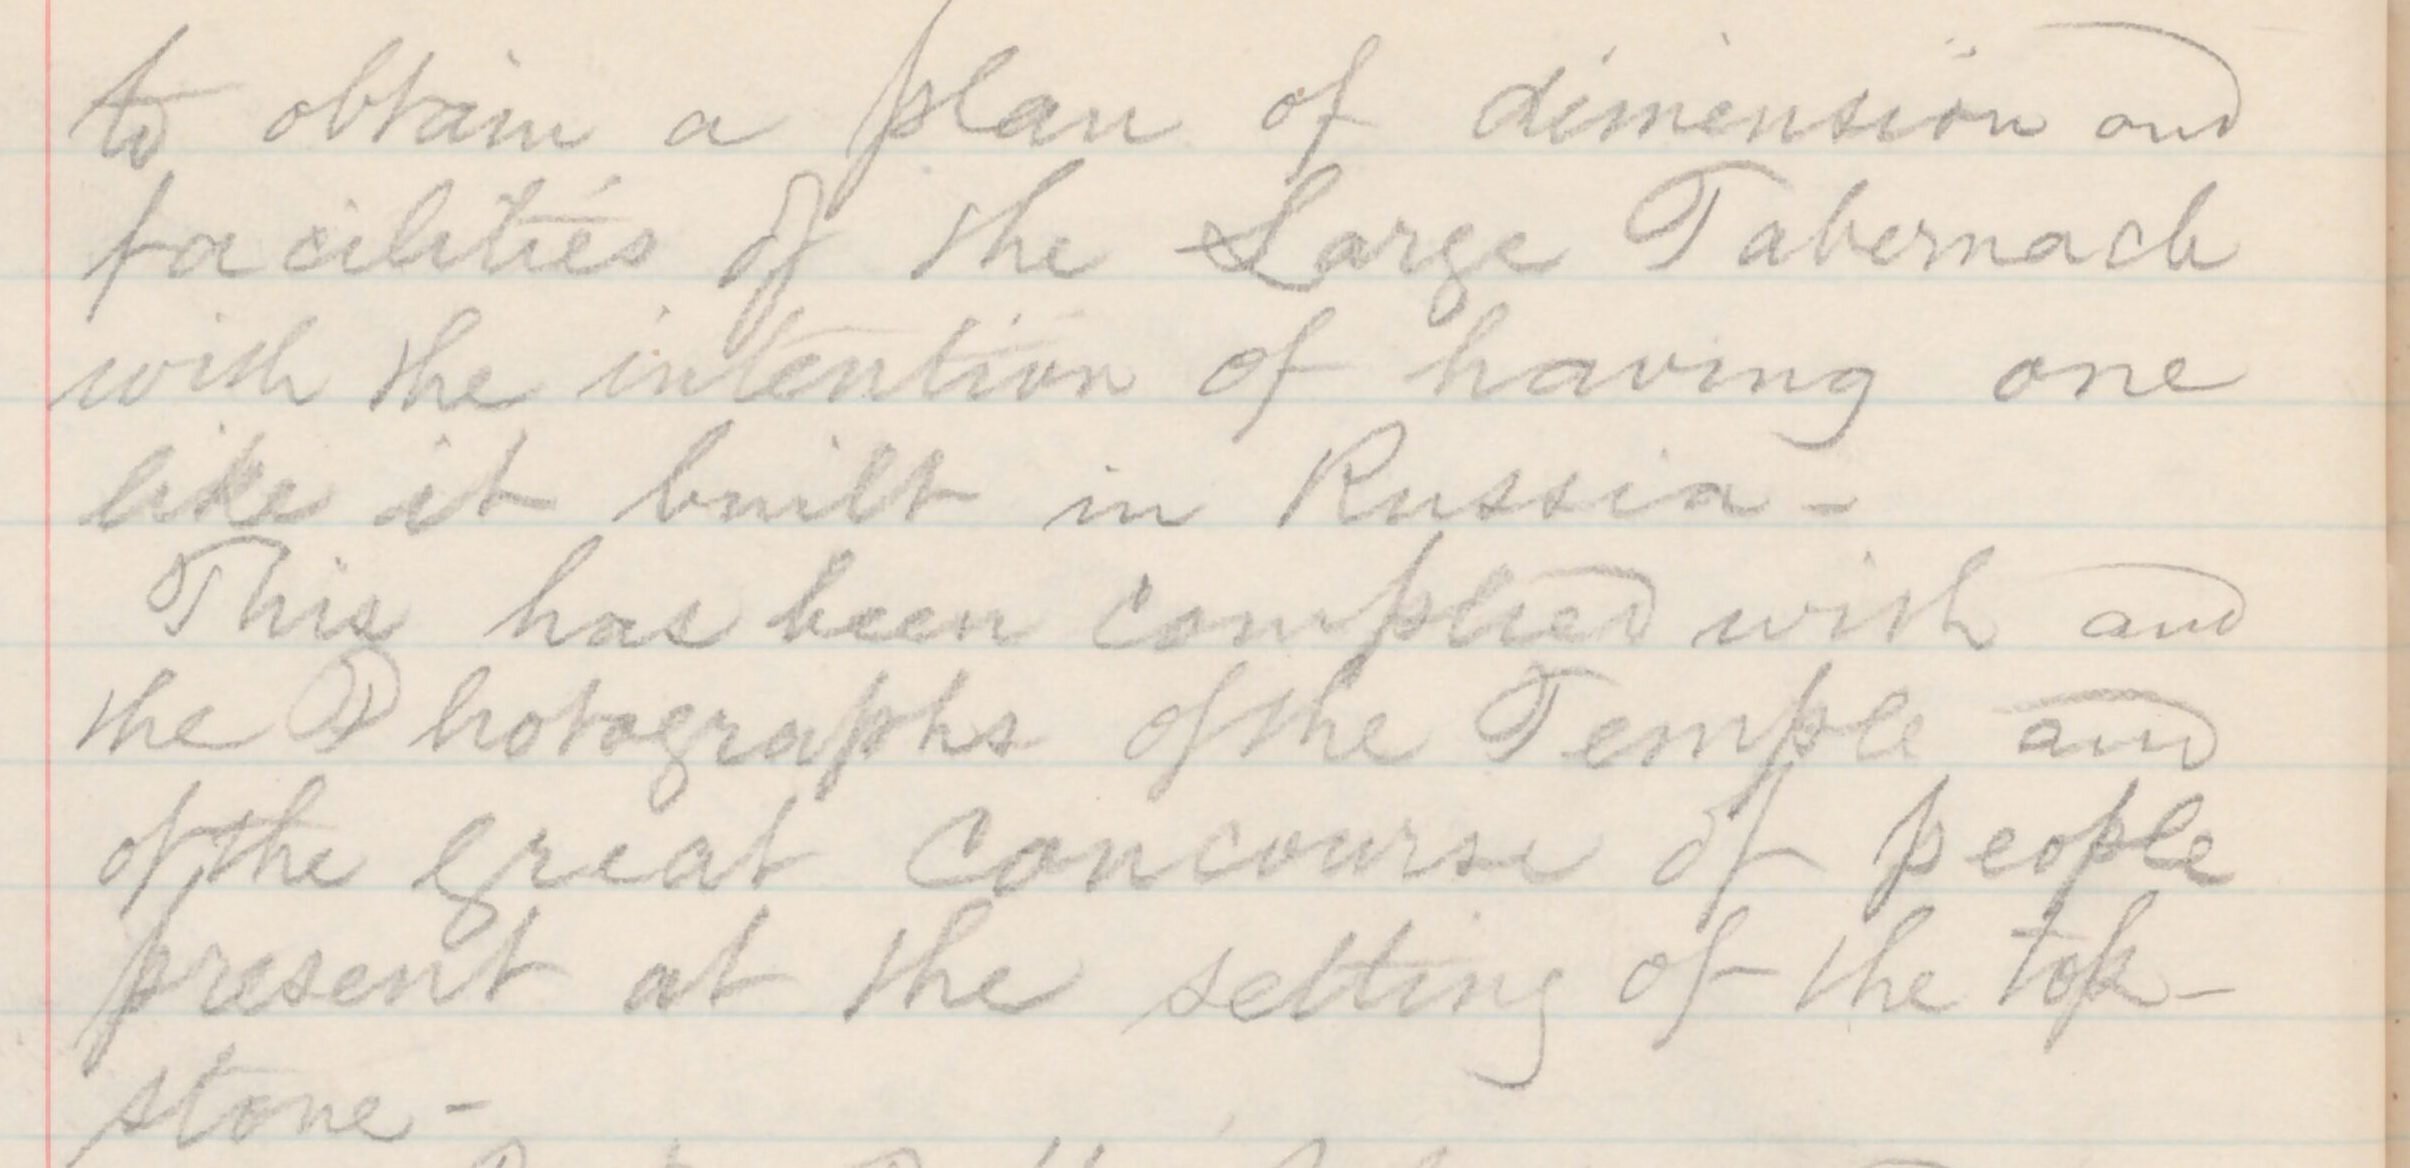 to obtain a plan of dimension and
facilities of the Large Tabernacle
with the intention of having one
like it built in Russia -
This has been complied with and
the Photographs of the Temple and
of the great concourse of people
present at the setting of the top-
stone -